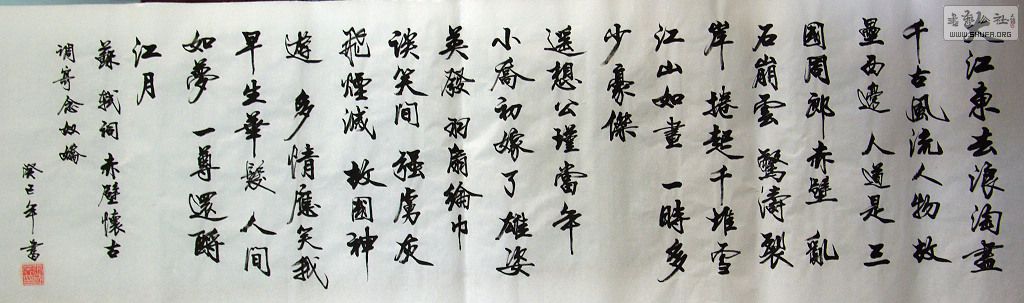 大江東去浪淘盡
千古風流人物故
壘西邊 人道是三
國周郎赤壁 亂
石崩雲 驚濤裂
岸 捲起千堆雪
江山如畫 一時多
少豪傑
遥想公瑾當年
小喬初嫁了 雄姿
英發 羽扇綸巾
談笑間 強虜灰
飛煙滅 故國神
遊 多情應笑我
早生華髮 人間
如夢 一尊還酹
江月
蘇軾詞 赤壁懷古
調寄念奴嬌
癸巳年書
WWW.SHUFA.ORG